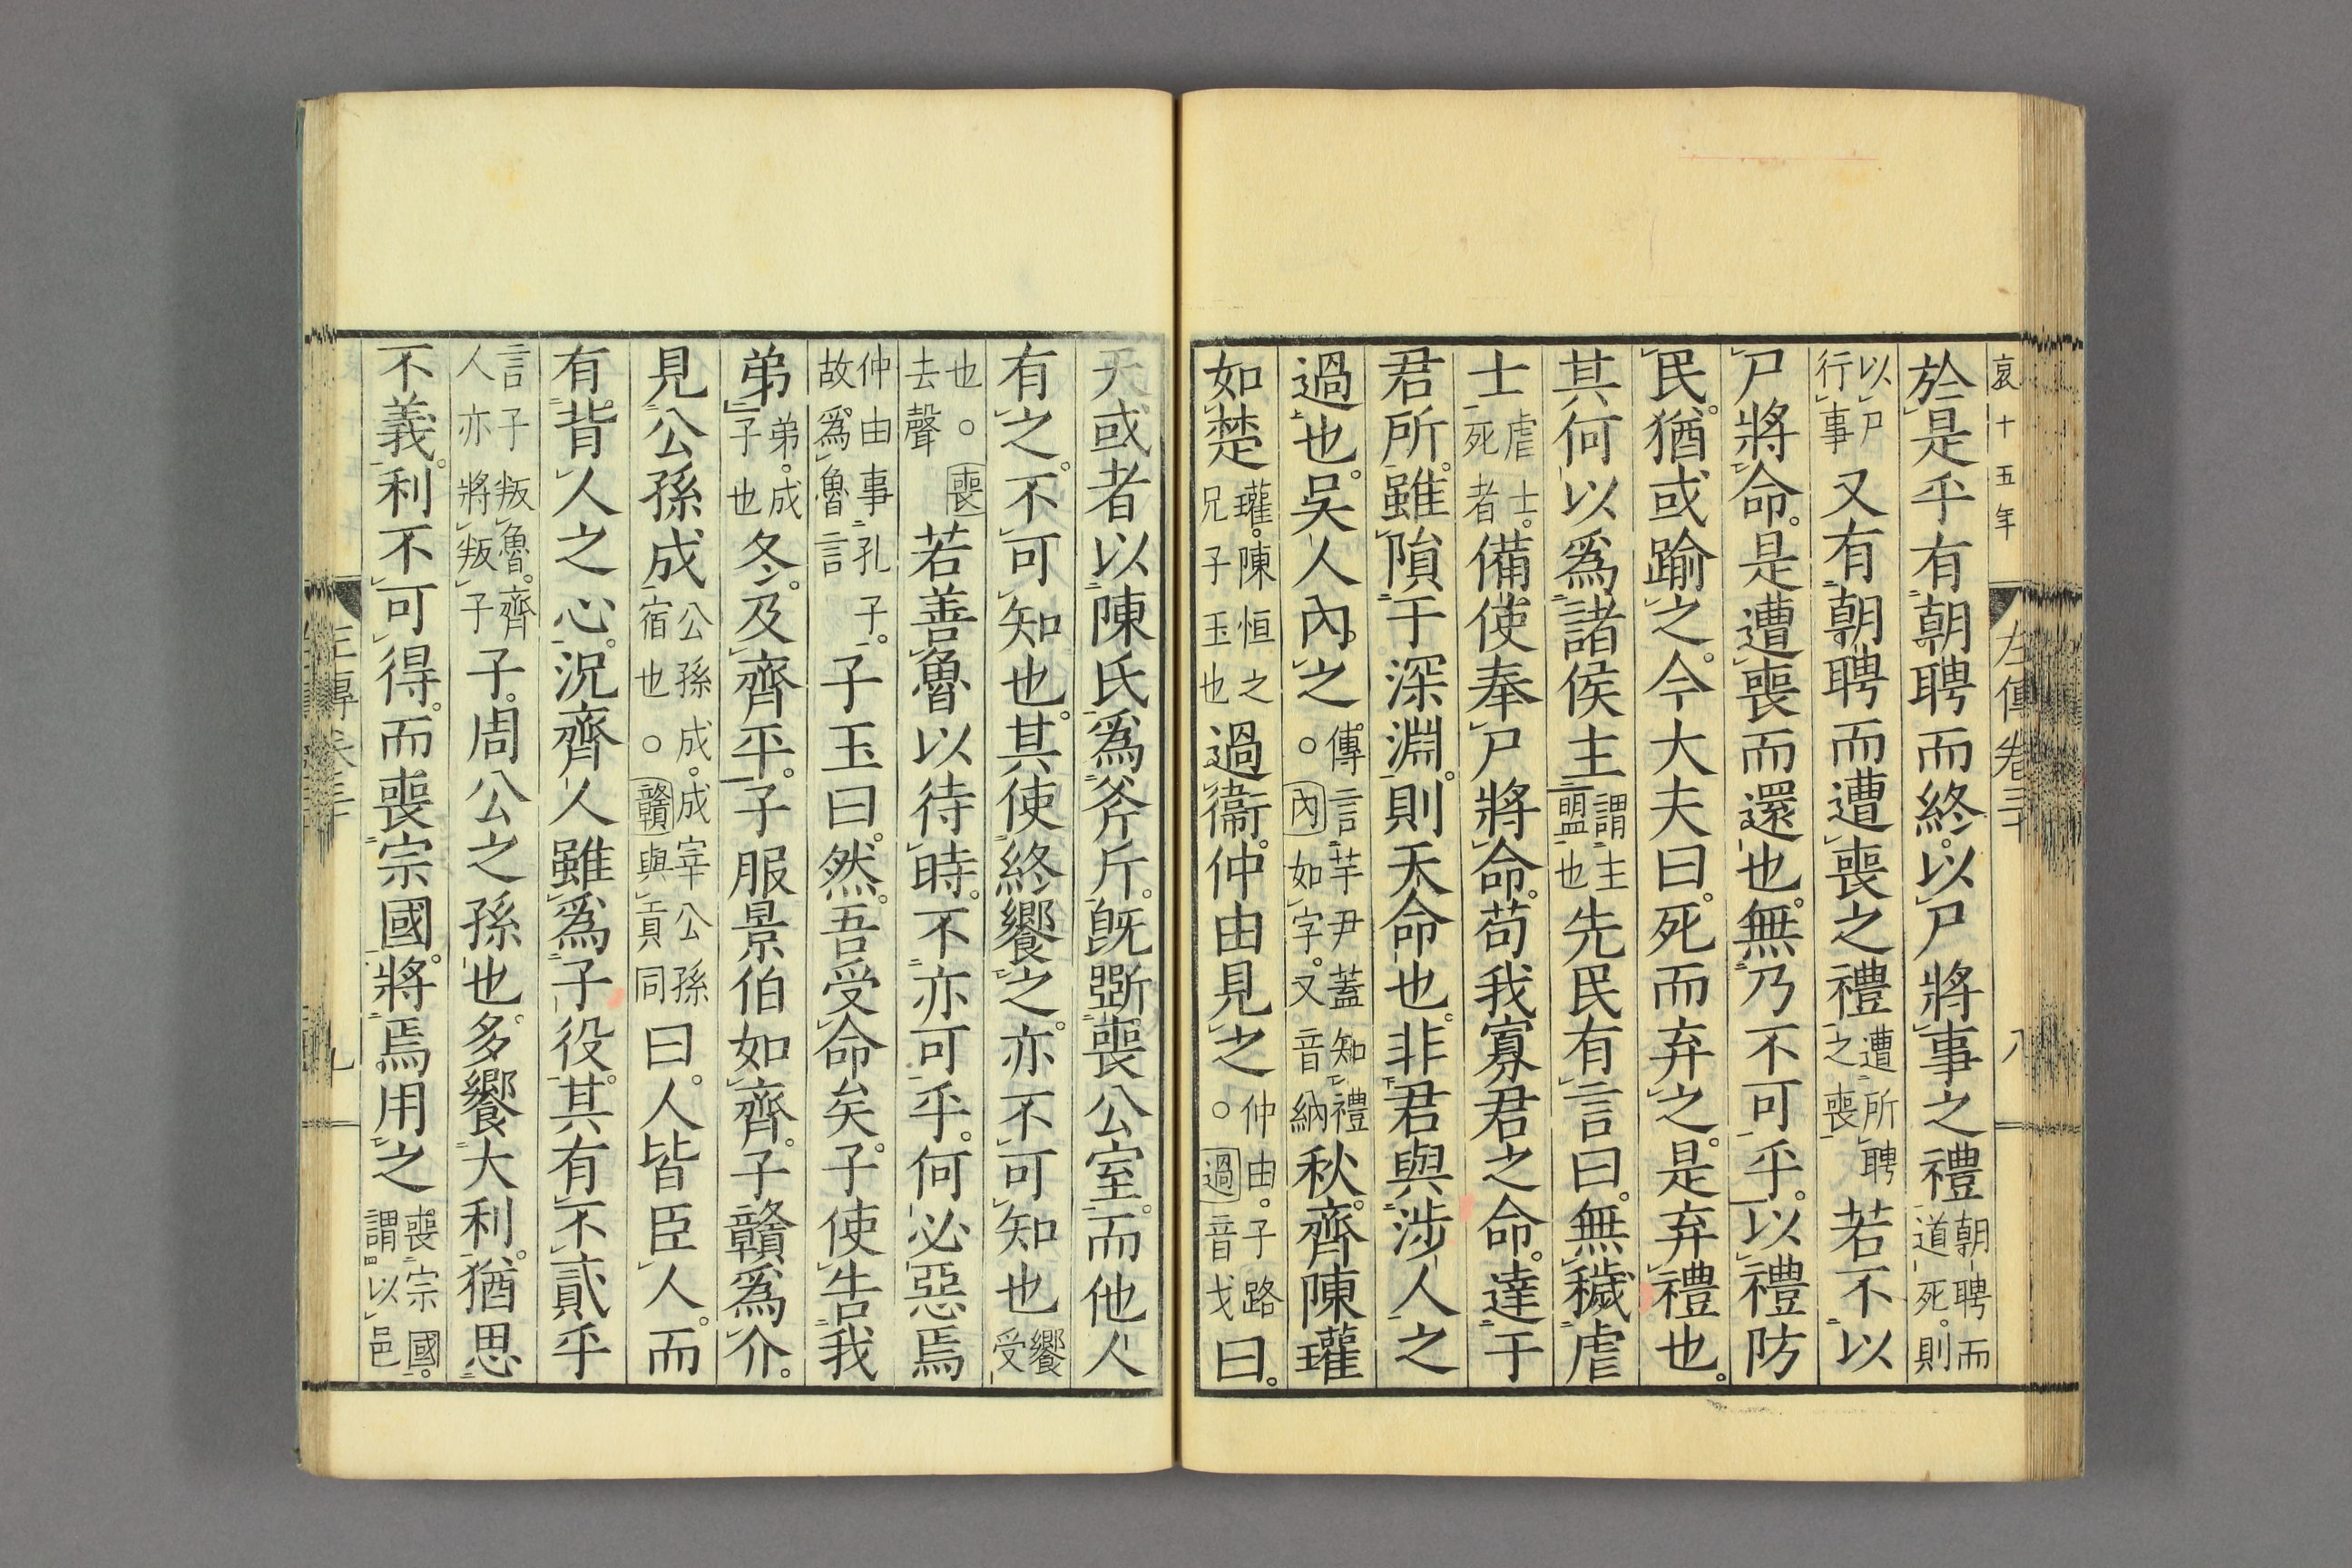 哀十五年
左傳卷三十
八
於是乎有朝聘而終。以尸將事之禮朝聘而道死。則
以尸行事又有朝聘而遭喪之禮遭所聘之喪若不以
尸將命。是遭喪而還也。無乃不可乎。以禮防
民。猶或踰之。今大夫曰。死而弃之。是弃禮也。
其何以爲諸侯主謂主盟也先民有言曰。無穢虐
士虐士。死者備使奉尸將命。苟我寡君之命。達于
君所。雖隕于深淵。則天命也。非君與涉人之
過也。吳人內之。傳言芋尹蓋知禮○內如字。又音納秋。齊陳瓘
如楚瓘。陳恒之兄子玉也過衞。仲由見之仲由。子路○過音戈曰。
天或者以陳氏爲斧斤。旣斲喪公室。而他人
有之。不可知也。其使終饗之。亦不可知也饗受
也。○喪去聲若善魯以待時。不亦可乎。何必惡焉
仲由事孔子。故爲魯言子玉曰。然。吾受命矣。子使告我
弟弟。成子也冬。及齊平。子服景伯如齊。子贛爲介。
見公孫成公孫成。成宰公孫宿也○贛與貢同曰。人皆臣人。而
有背人之心。況齊人雖爲子役。其有不貳乎
言子叛魯。齊人亦將叛子子。周公之孫也。多饗大利。猶思
不義。利不可得。而喪宗國。將焉用之喪宗國。謂以邑
九